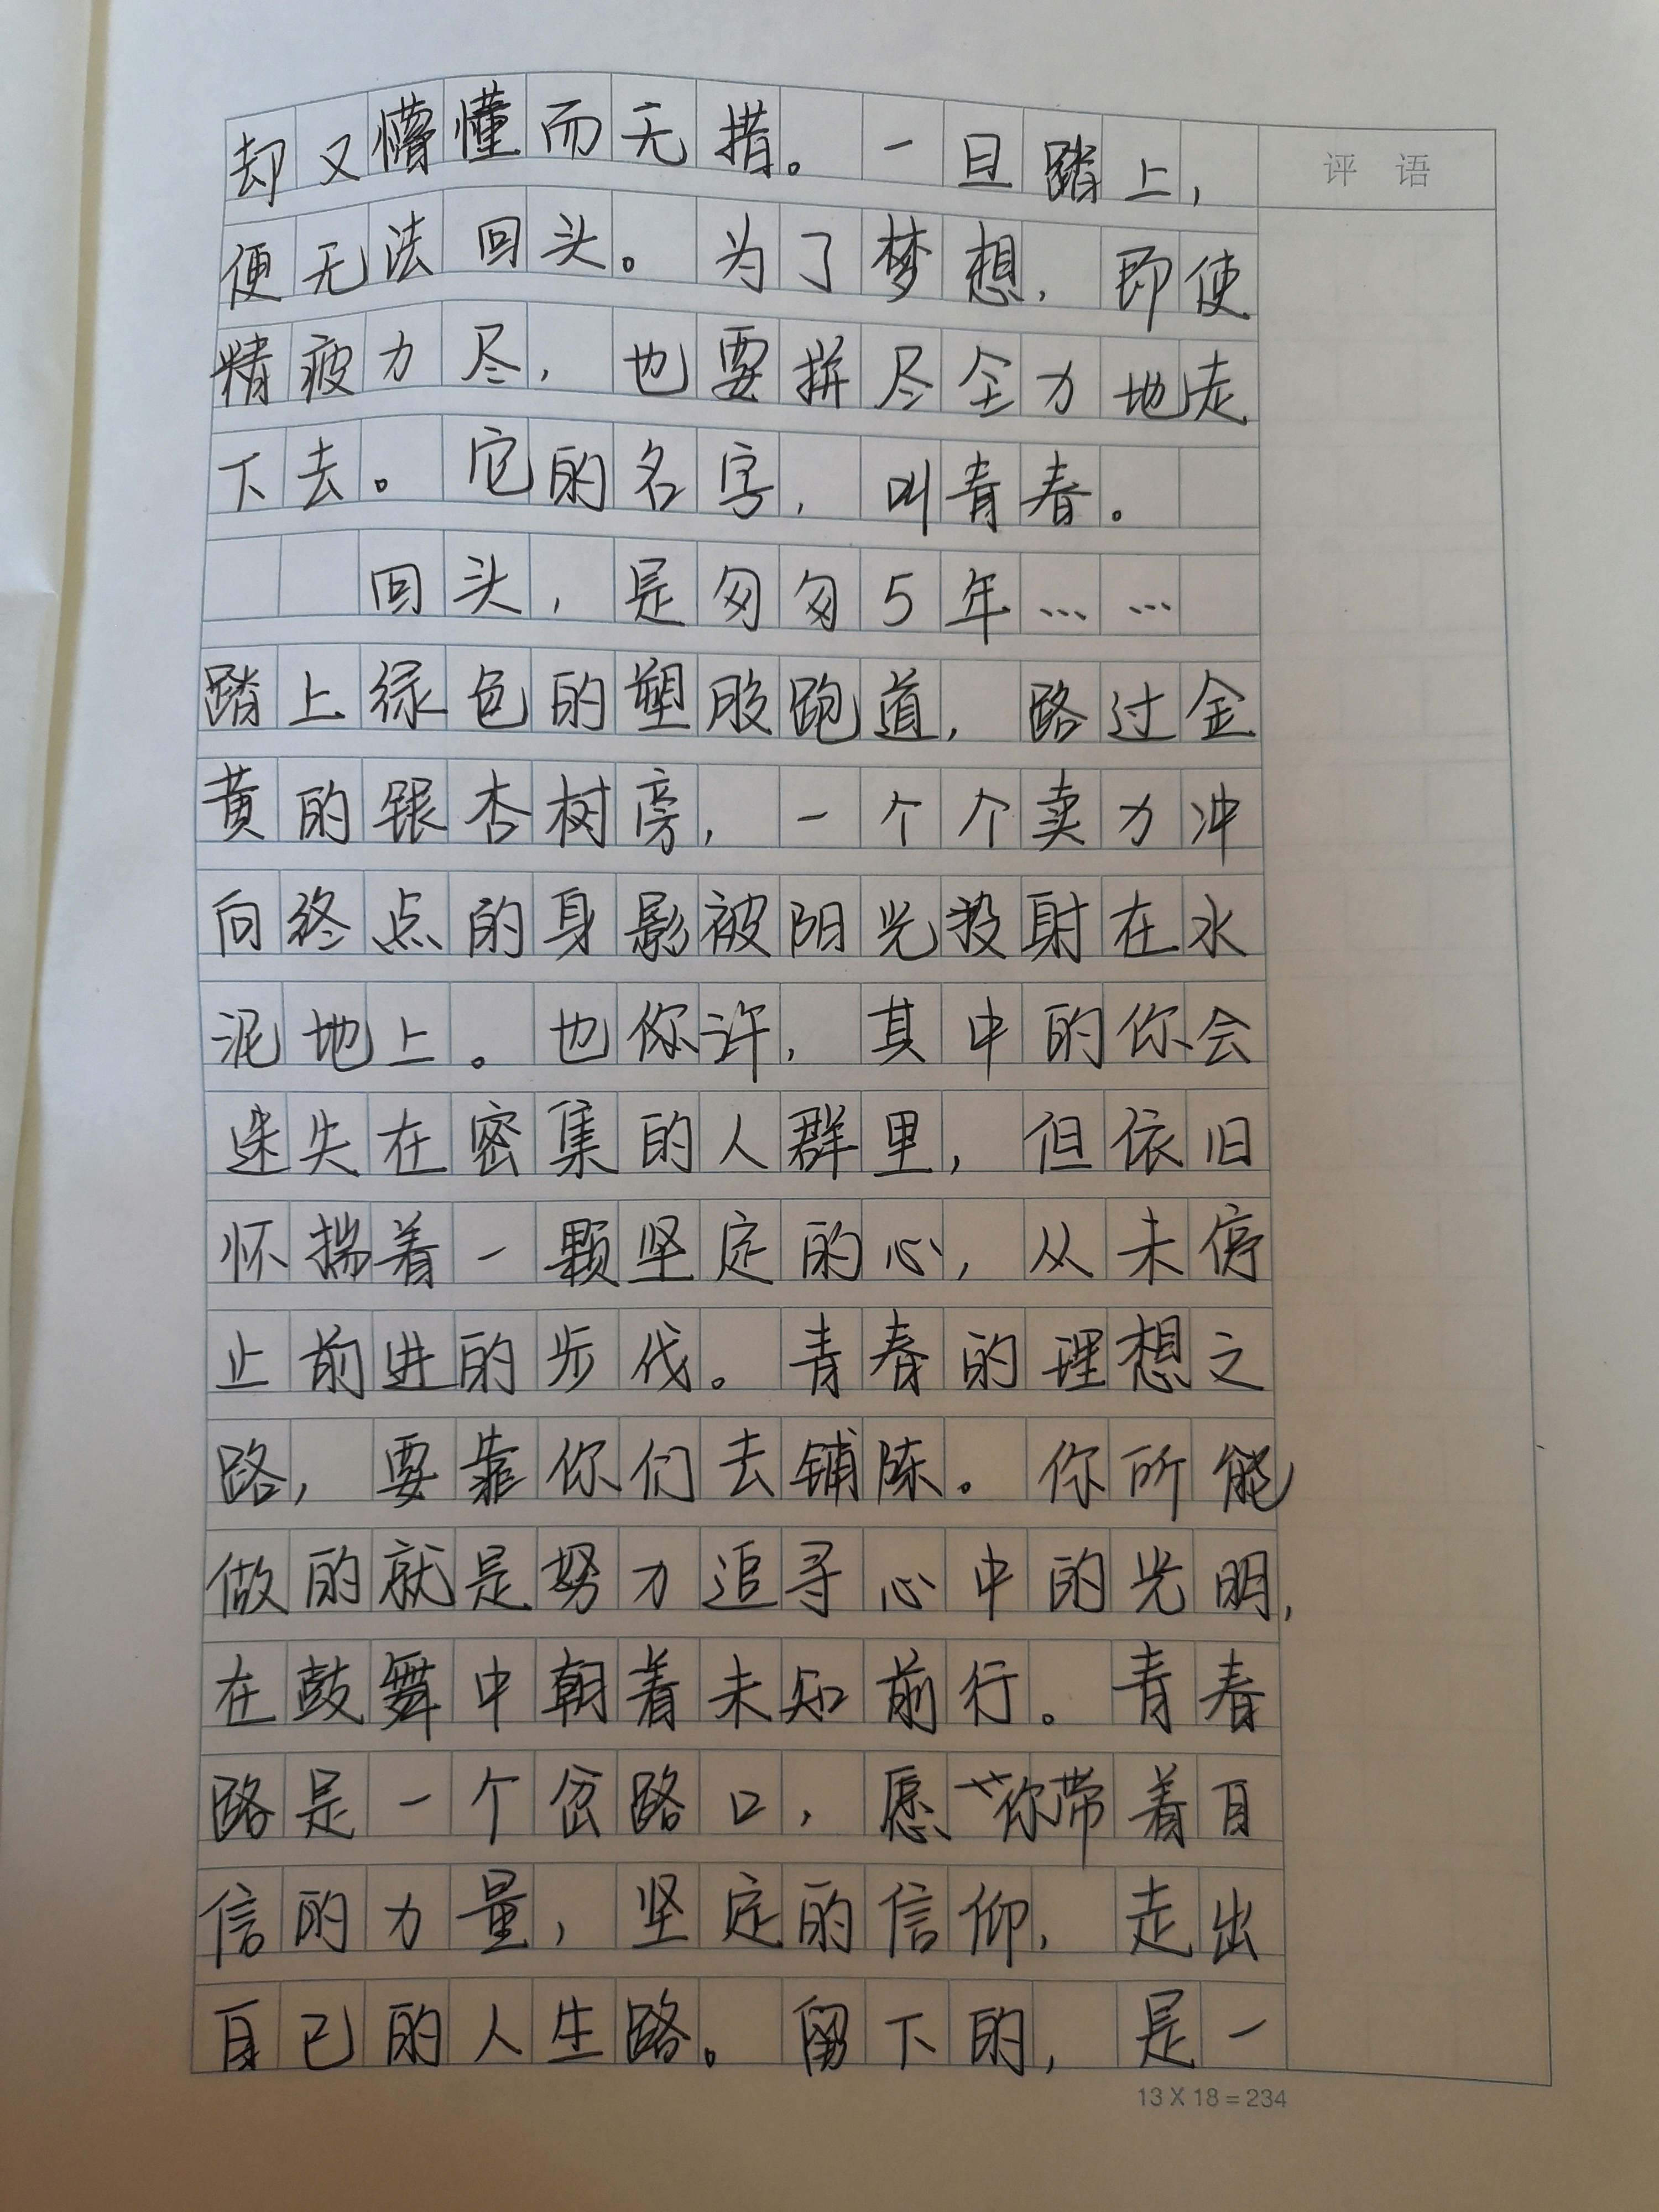 却又懵懂而无措。一旦踏上,
便无法回头。为了梦想,即使
精疲力尽,也要拼尽全力地走
下去。它的名字,叫青春。
回头,是匆匆5年……
踏上绿色的塑胶跑道,路过金
黄的银杏树旁,一个个卖力冲
向终点的身影被阳光投射在水
泥地上。也你许,其中的你会
迷失在密集的人群里,但依旧
怀揣着一颗坚定的心,从未停
止前进的步伐。青春的理想之
路,要靠你们去铺陈。你所能
做的就是努力追寻心中的光明,
在鼓舞中朝着未知前行。青春
路是一个岔路口,愿你带着自
信的力量,坚定的信仰,走出
自己的人生路。留下的,是一
评语
13 X 18 = 234